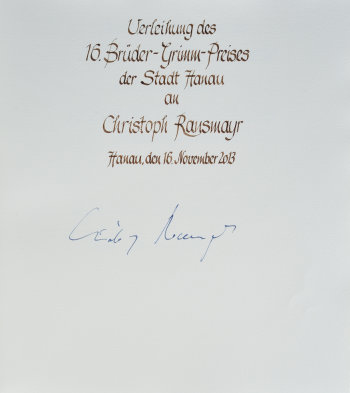 Verleihung des
16. Brüder-Grimm-Preises
der Stadt Hanau
an
Christoph Ransmayr
Hanau, den 16. November 2013